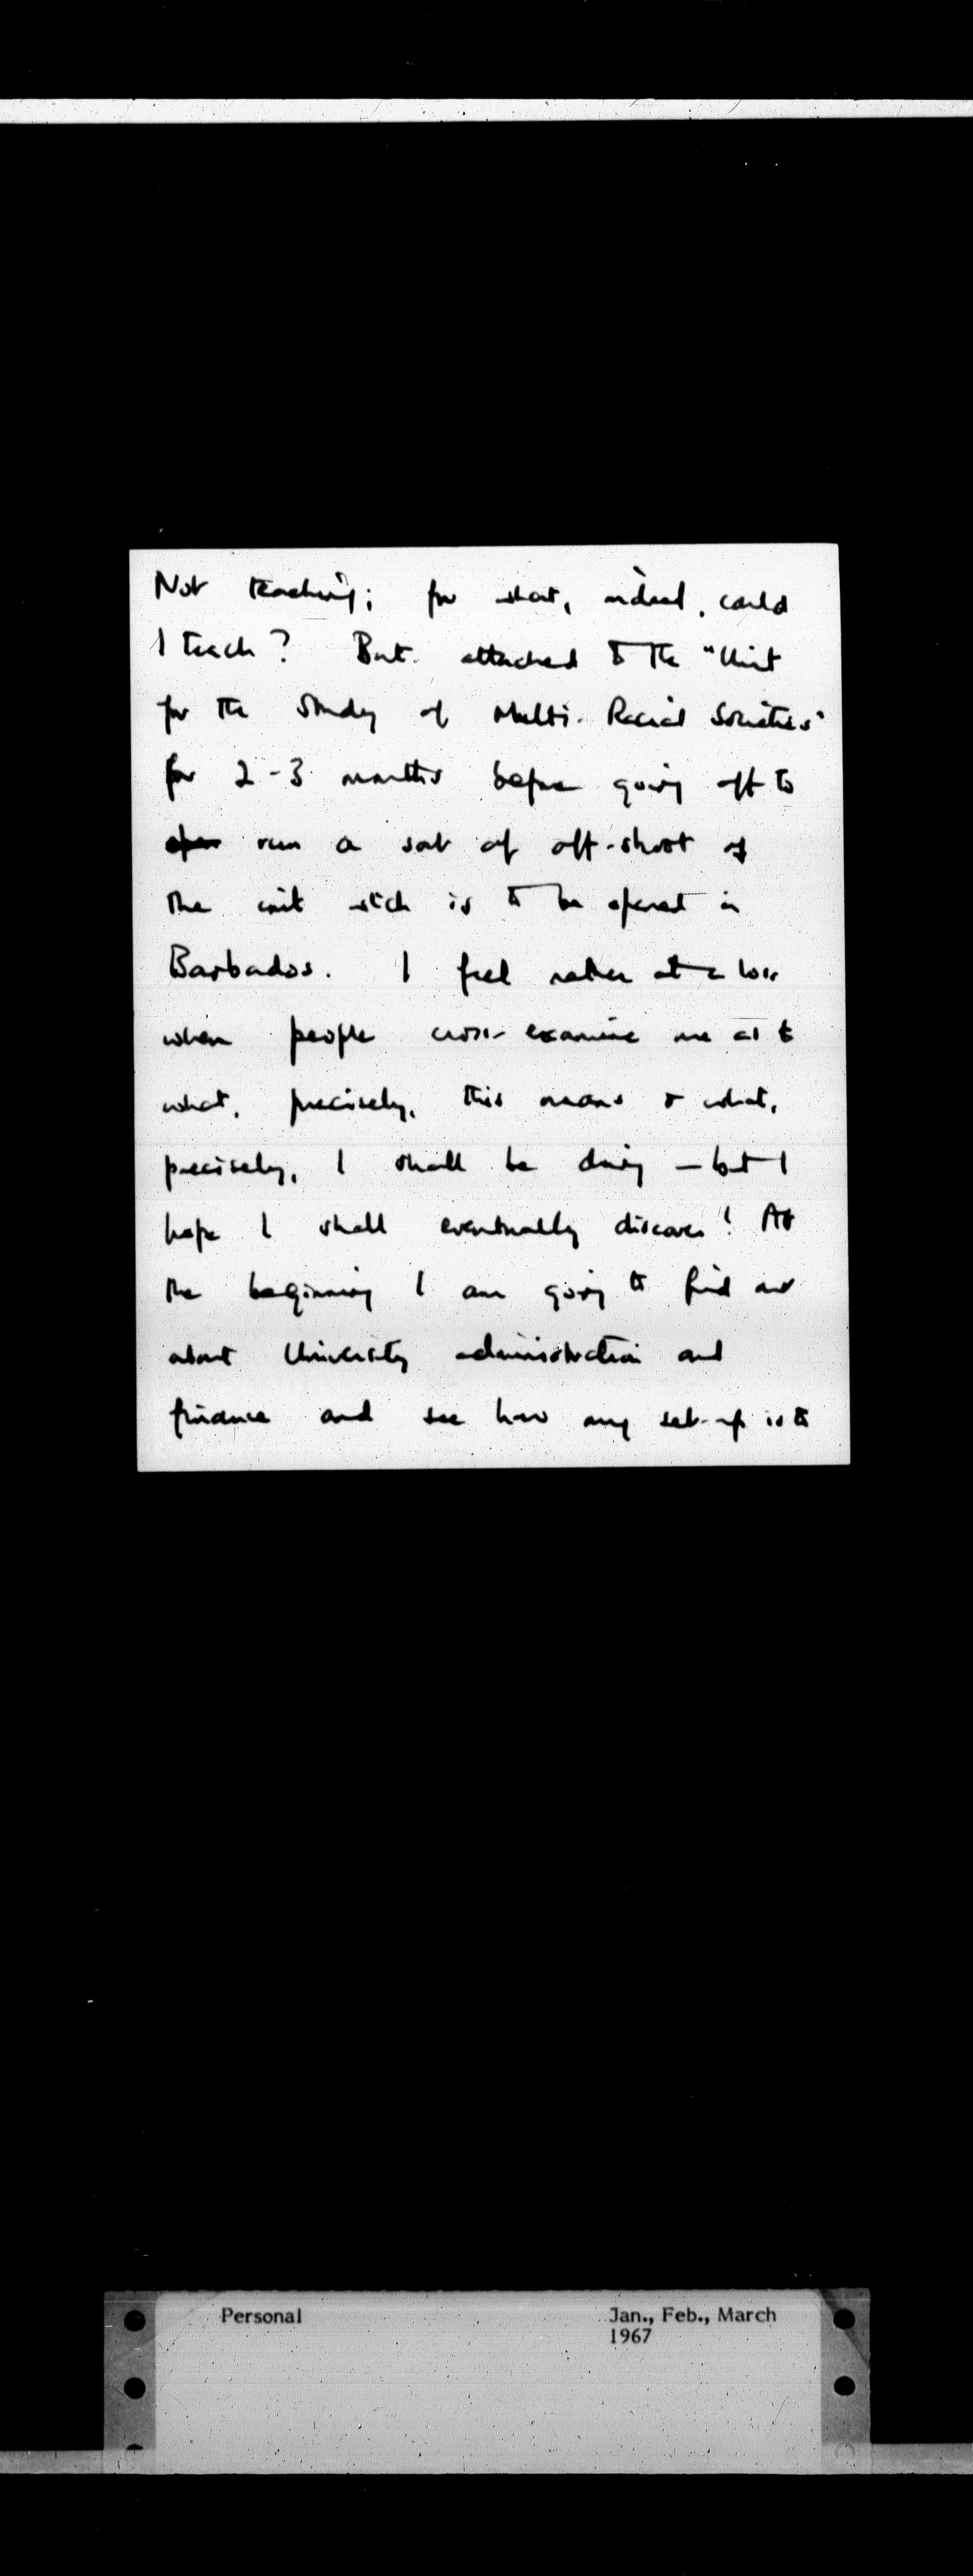 Not teaching; for what, indeed, could
I teach? But attached to the "Unit
for the Study of Multi-Racial Societies"
for 2-3 months before going off to
open run a sort of off-shoot of
the unit which is to be opened in
Barbados. I feel rather at a loss
when people cross-examine me as to
what, precisely, this means & what,
precisely, I shall be doing — but I
hope I shall eventually discover! At
the beginning I am going to find out
about University administration and
finance and see how my set-up is to
Personal
Jan., Feb., March
1967